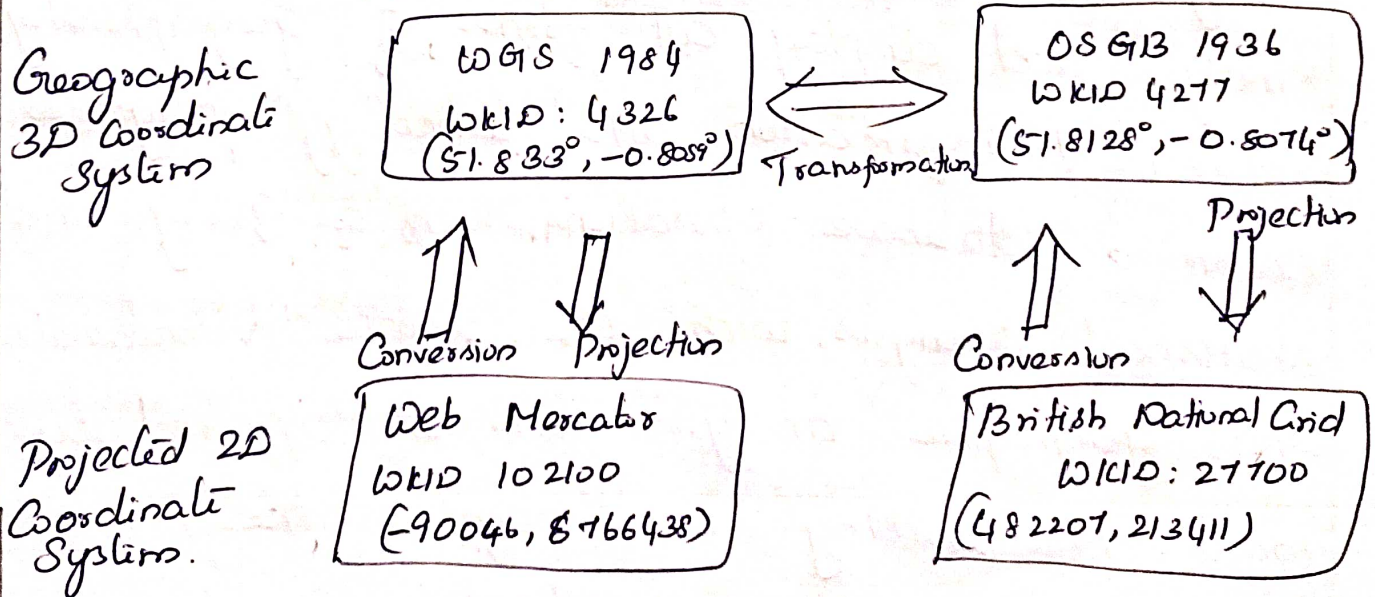 Geographic
3D Coordinate
System
WGS 1984
WKID: 4326
(51.833°, -0.8059°)
Transformation
OSGB 1936
WKID 4277
(51.8128°, -0.8074°)
Conversion
Projection
Conversion
Projection
Projected 2D
Coordinate
System.
Web Mercator
WKID 102100
(-90046, 6766438)
British National Grid
WKID: 27700
(482207, 213411)